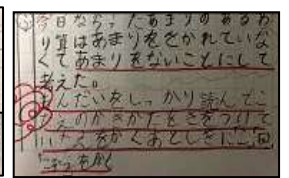 今日ならったあまりのあるわ
り算はあまりをかかれていな
くてあまりをないことにして
考えた。
もんだいをしっかり読んでこ
えのかきかたをきをつけて
かくあとしきに